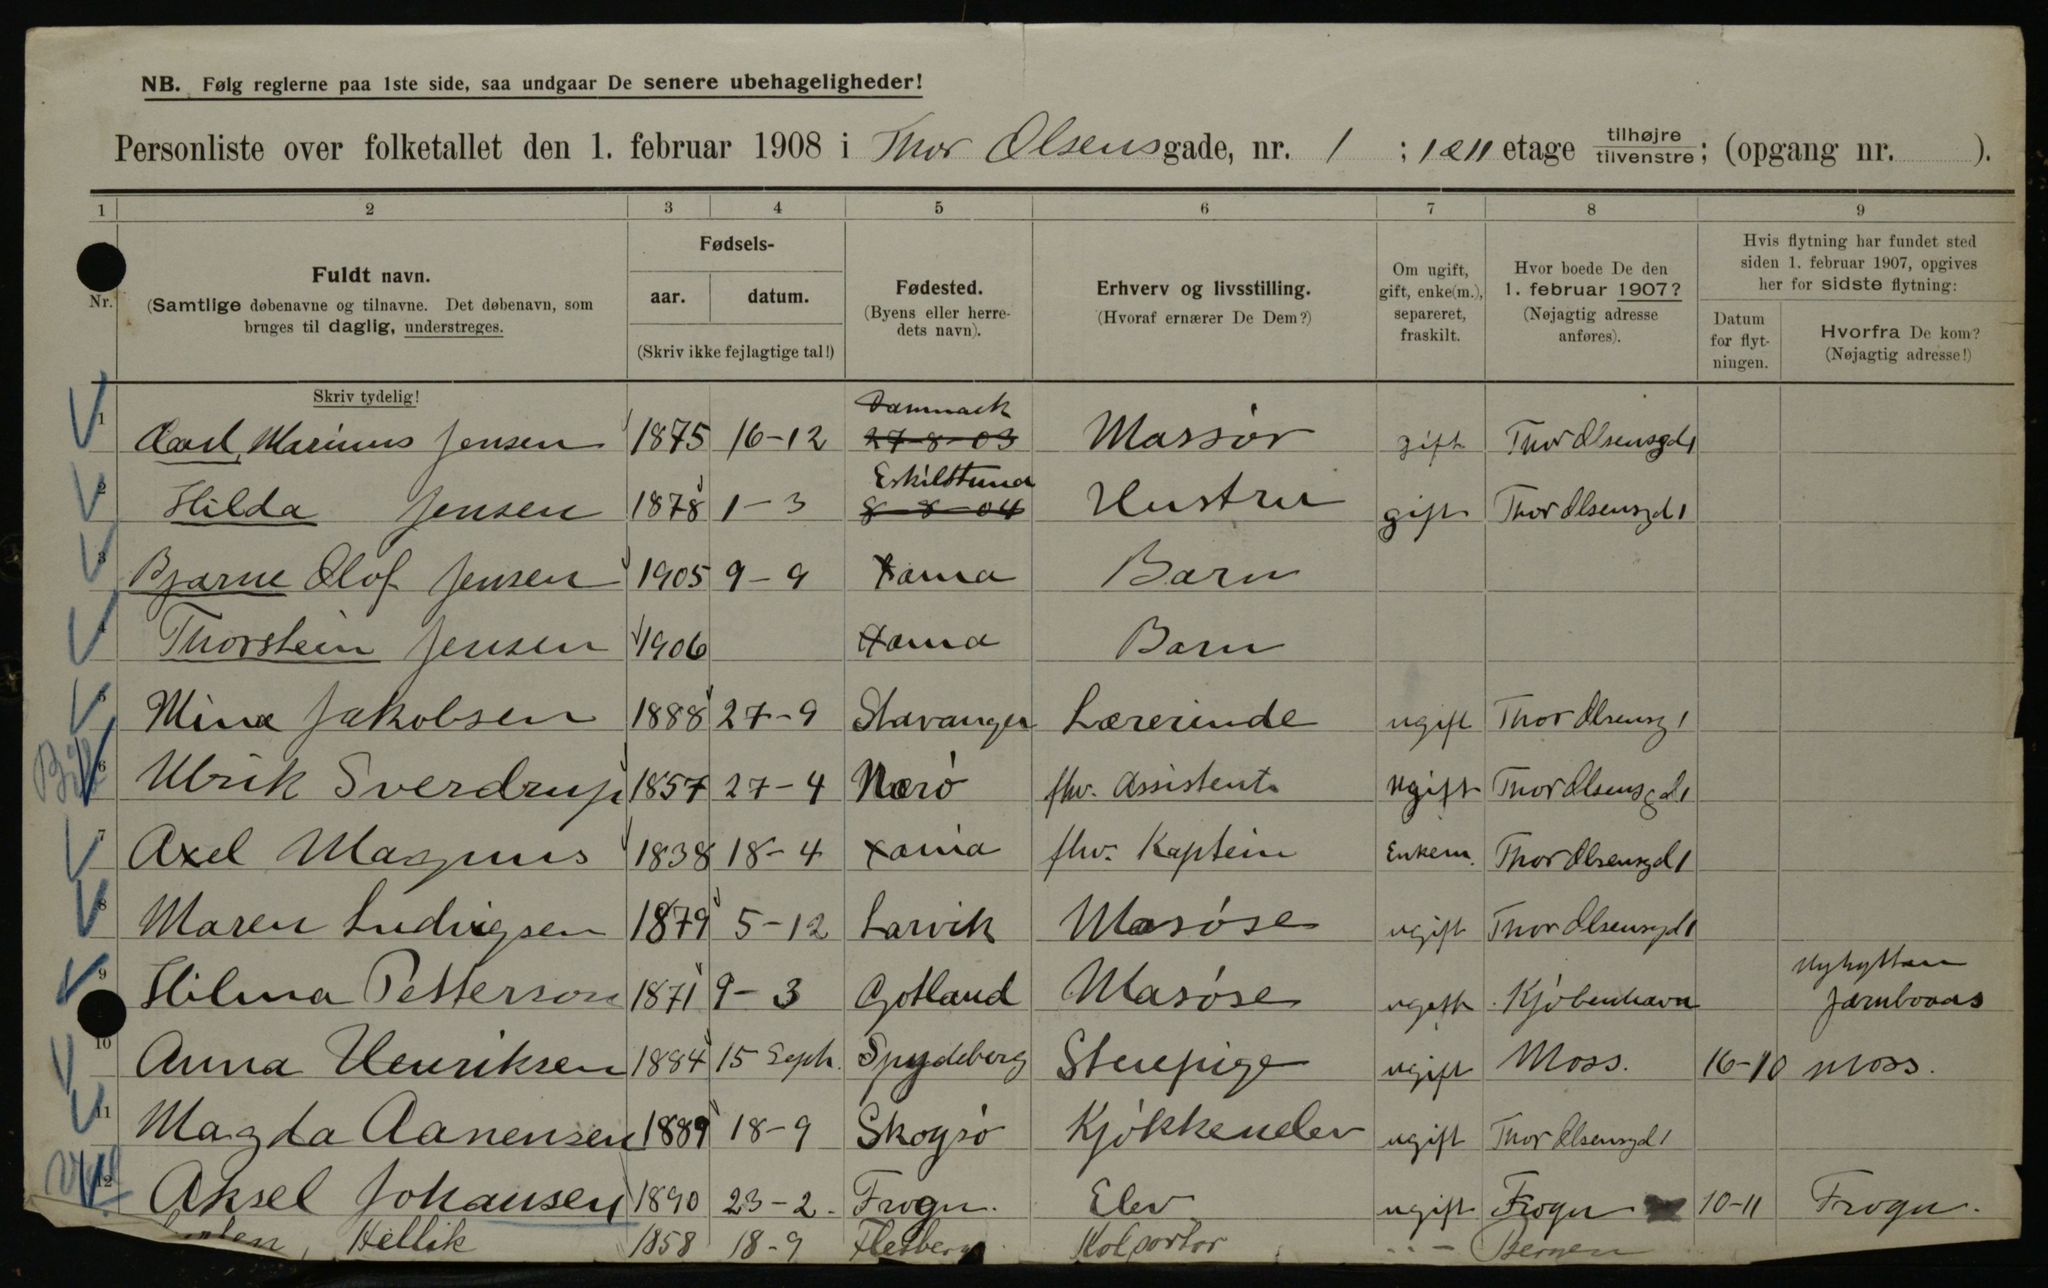 NB. Følg reglerne paa 1ste side, saa undgaar De senere ubehageligheder!
Personliste over folketallet den 1. februar 1908 i Thor Olsens gade, nr. 1 ; 1 & 11 etage tilhøjre / tilvenstre ; (opgang nr. ).
1 2 3 4 5 6 7 8 9
Nr.
Fuldt navn.
(Samtlige døbenavne og tilnavne. Det døbenavn, som
bruges til daglig, understreges.
Skriv tydelig!
Fødsels-
aar. datum.
(Skriv ikke fejlagtige tal!)
Fødested.
(Byens eller herre-
dets navn).
Erhverv og livsstilling.
(Hvoraf ernærer De Dem?)
Om ugift,
gift, enke(m.),
separeret,
fraskilt.
Hvor boede De den
1. februar 1907?
(Nøjagtig adresse
anføres).
Hvis flytning har fundet sted
siden 1. februar 1907, opgives
her for sidste flytning:
Datum
for flyt-
ningen.
Hvorfra De kom?
(Nøjagtig adresse!)
Danmark
1 Carl Marinus Jensen 1875 16-12 27-8-03 Massør gift Thor Olsensgd 1
Eskilstuna
2 Hilda Jensen 1878 1-3 8-8-04 Hustru gift Thor Olsensgd 1
3 Bjarne Olof Jensen 1905 9-9 Xania Barn
4 Thorstein Jensen 1906 Xania Barn
5 Mina Jakobsen 1888 27-9 Stavanger Lærerinde ugift Thor Olsensg 1
6 Ulrik Sverdrup 1857 27-4 Nærø fhv. Assistent ugift Thor Olsensgd 1
7 Axel Magnus 1838 18-4 Xania fhv. Kaptein Enkem. Thor Olsensgd 1
8 Maren Ludvigsen 1879 5-12 Larvik Masøse ugift Thor Olsensgd 1
Nyhyttan
9 Hilma Petterson 1871 9-3 Gotland Masøse ugift Kjøbenhavn Jærnboaas
10 Anna Henriksen 1884 15 Sept. Spydeberg Stuepige ugift Moss. 16-10 Moss.
11 Magda Aanensen 1889 18-9 Skogsø Kjøkkenelev ugift Thor Olsensgd 1
12 Aksel Johansen 1890 23-2. Frogn. Elev ugift Frogn 10-11 Frogn.
Hellik 1858 18-9 Flesberg Kolportør Bergen